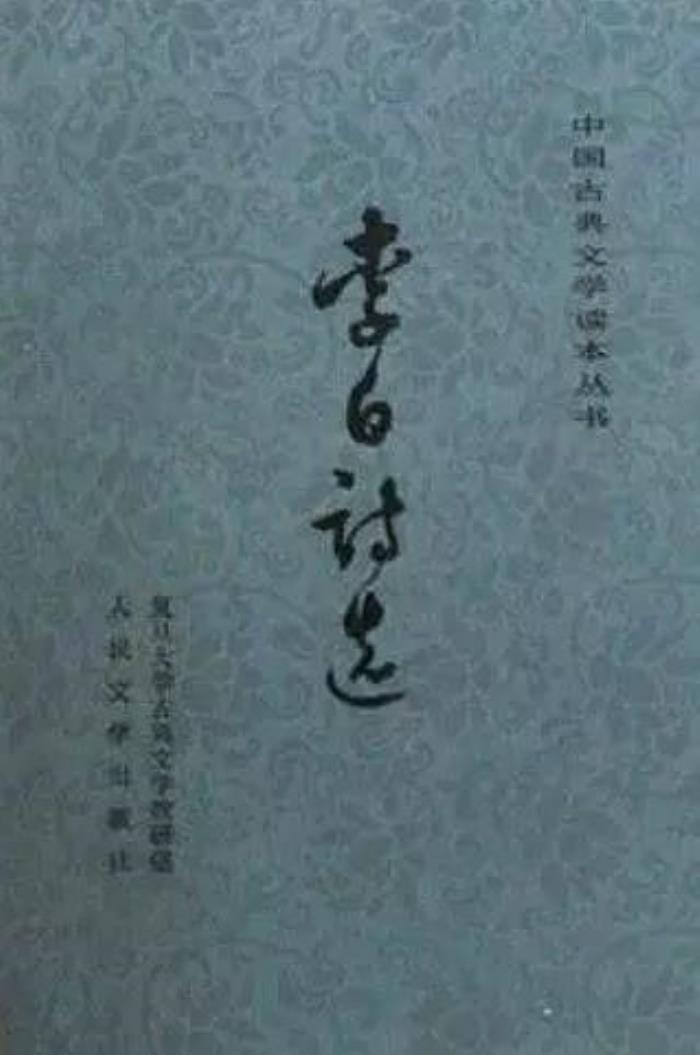 中国古典文学读本丛书
李白詩选
复旦大学古典文学教研组
人民文学出版社